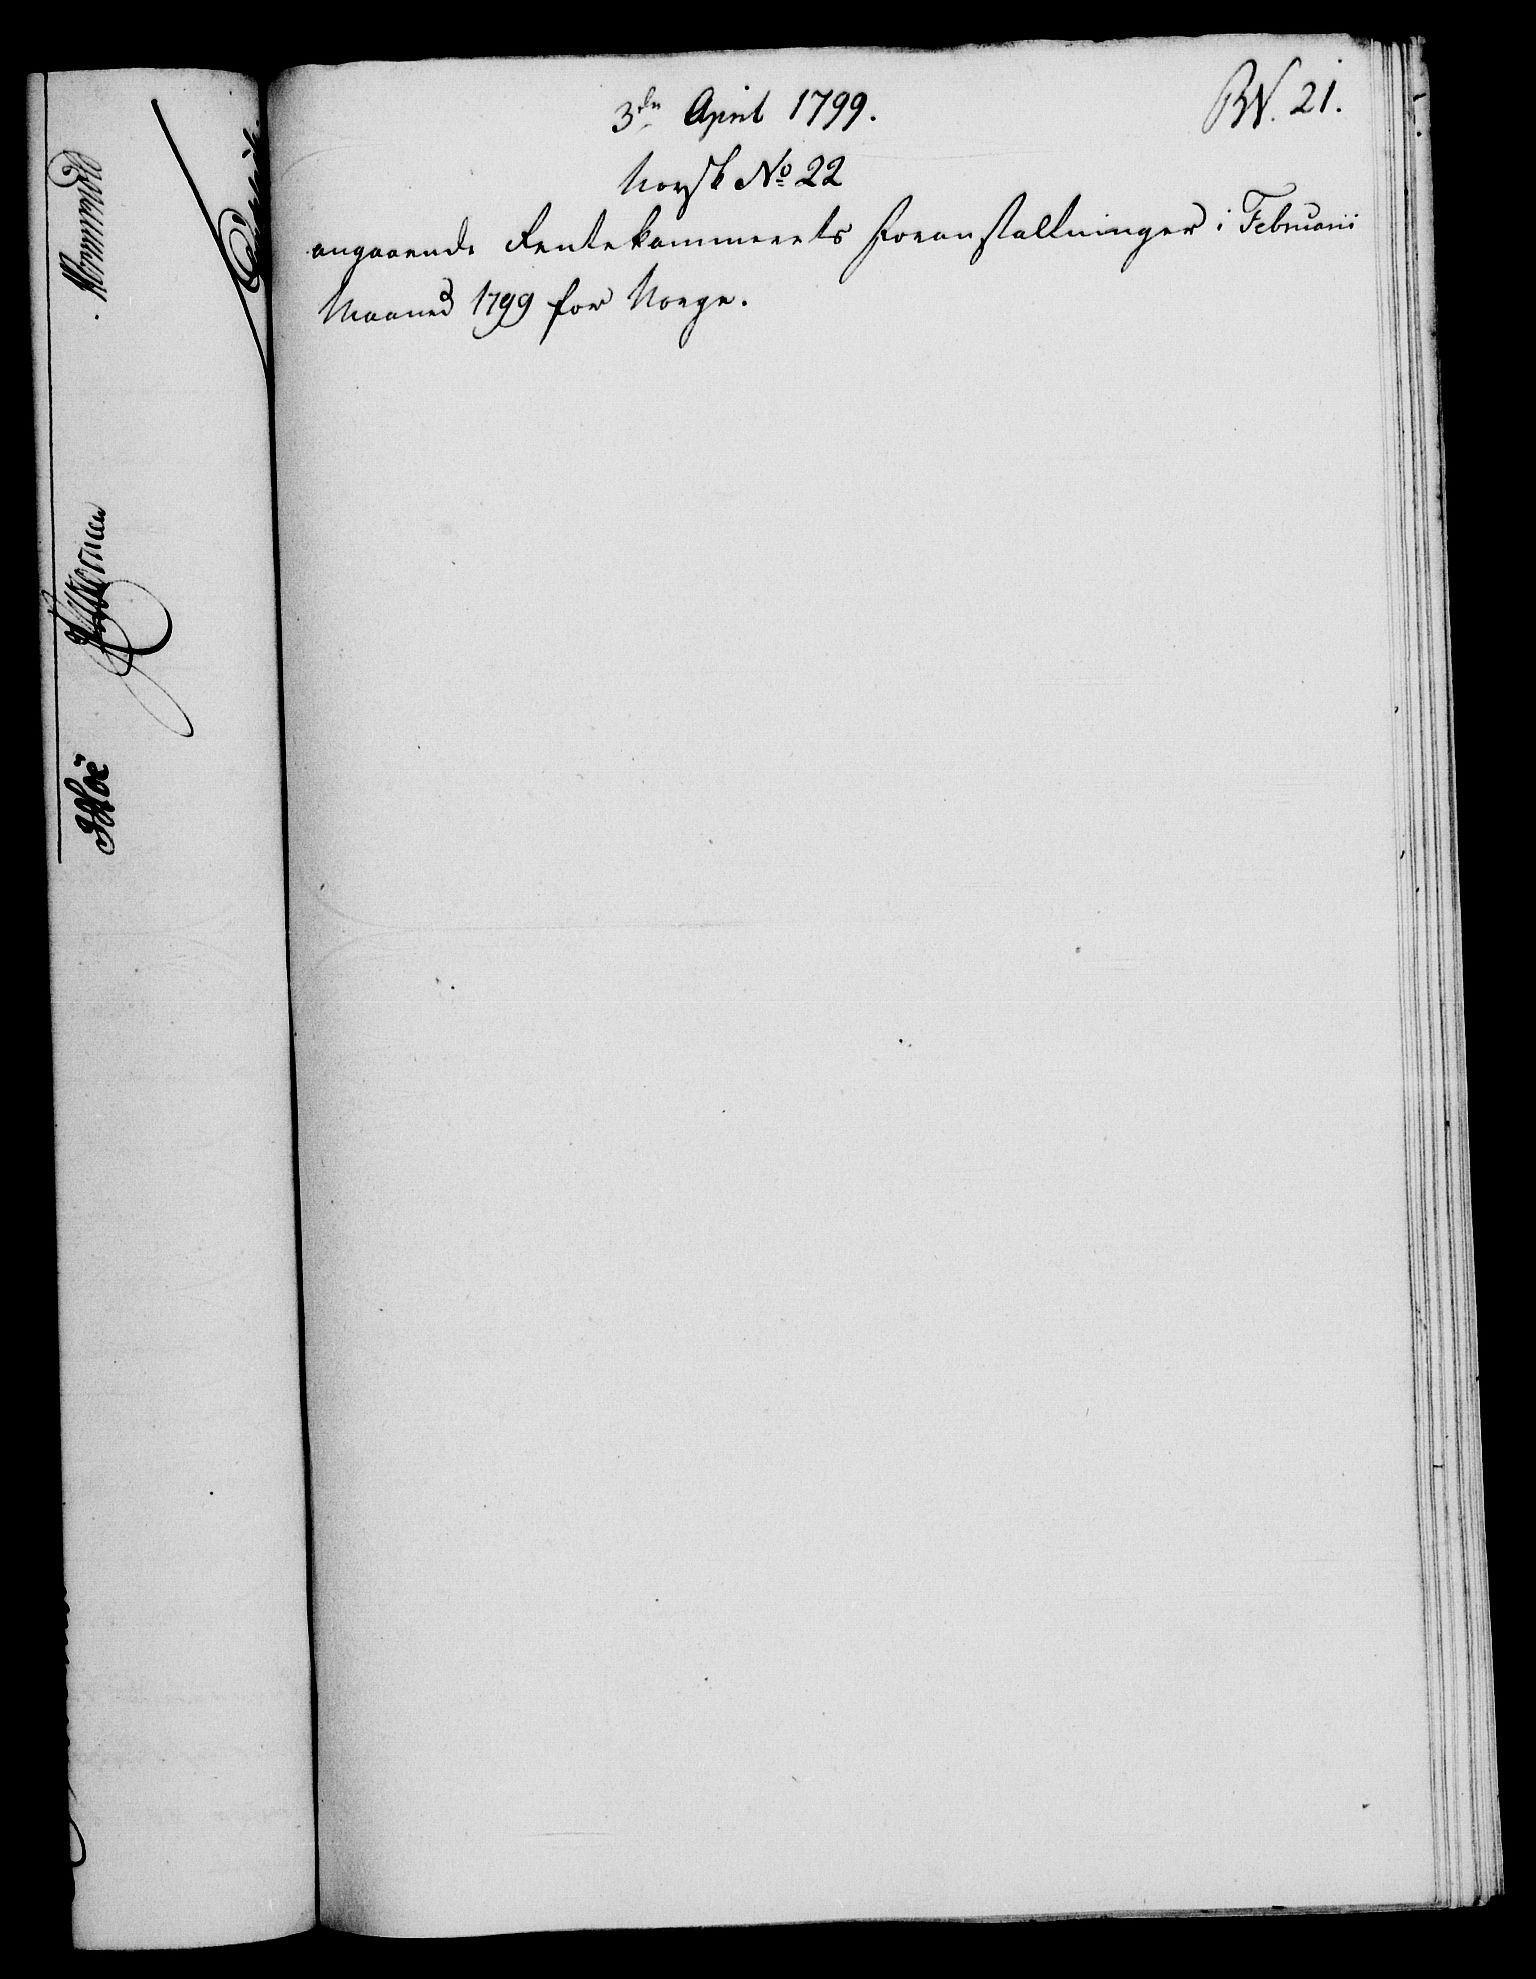 BN. 21.
3die April 1799.
Norsk No 22
angaaende Rentekammerets Foranstaltninger i Februarii
Maaned 1799 for Norge.